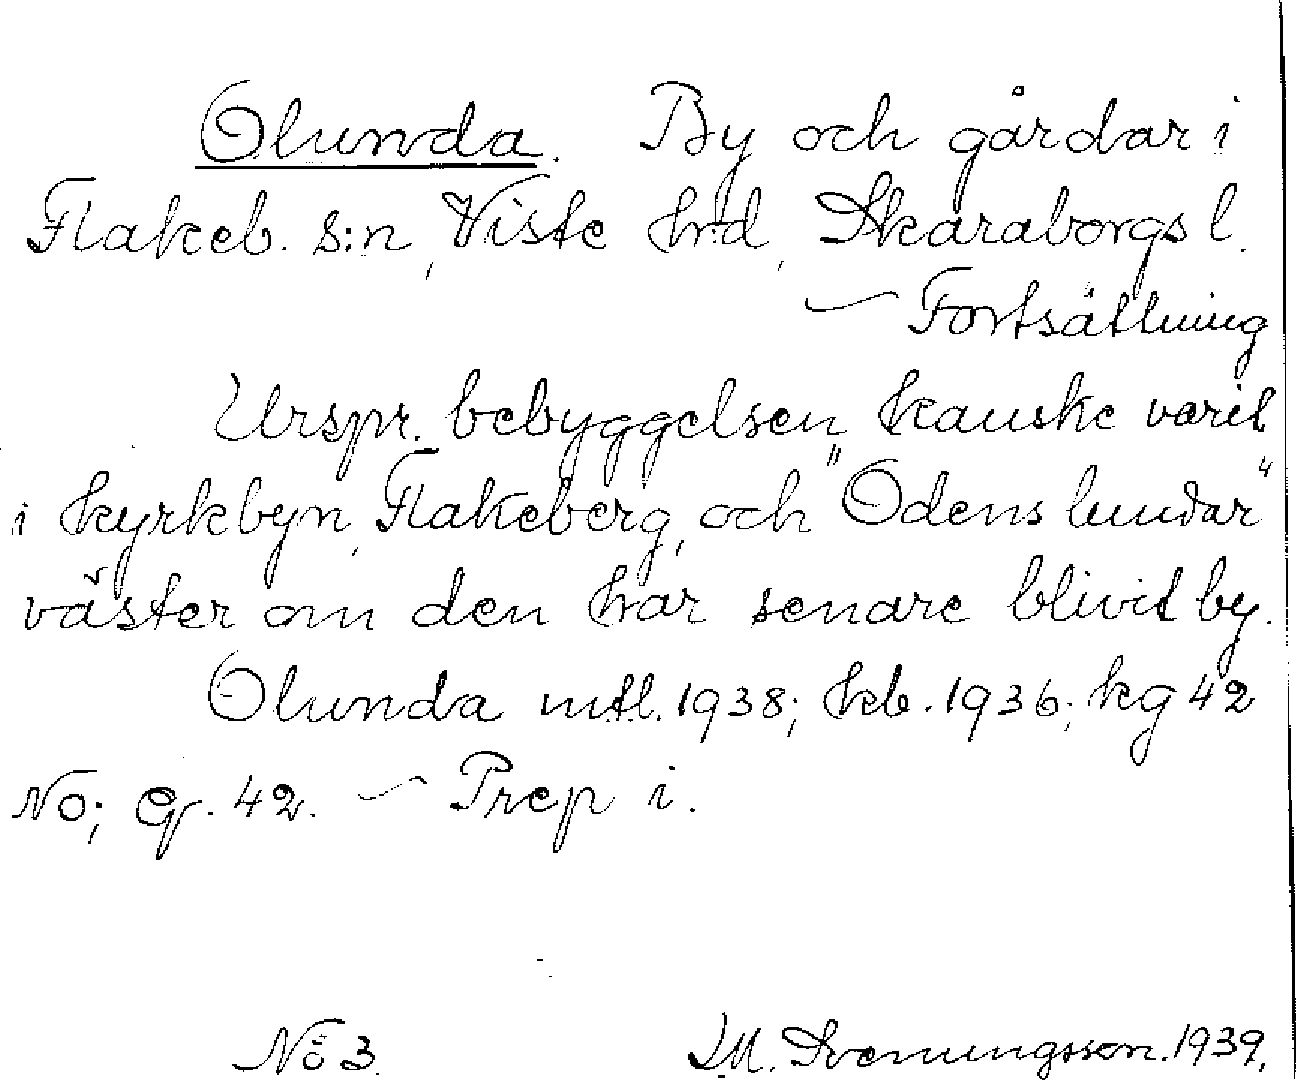 Olunda. By och gårdar i
Flakeb. s:n, Viste hrd, Skaraborgs l.
— Fortsättning
Urspr. bebyggelsen kanske varit
i kyrkbyn, Flakeberg, och "Odens lundar"
väster om den har senare blivit by.
Olunda mtl. 1938; kb. 1936; kg 42
No; Gr. 42. — Prep i.
No 3. M. Svenungsson. 1939.